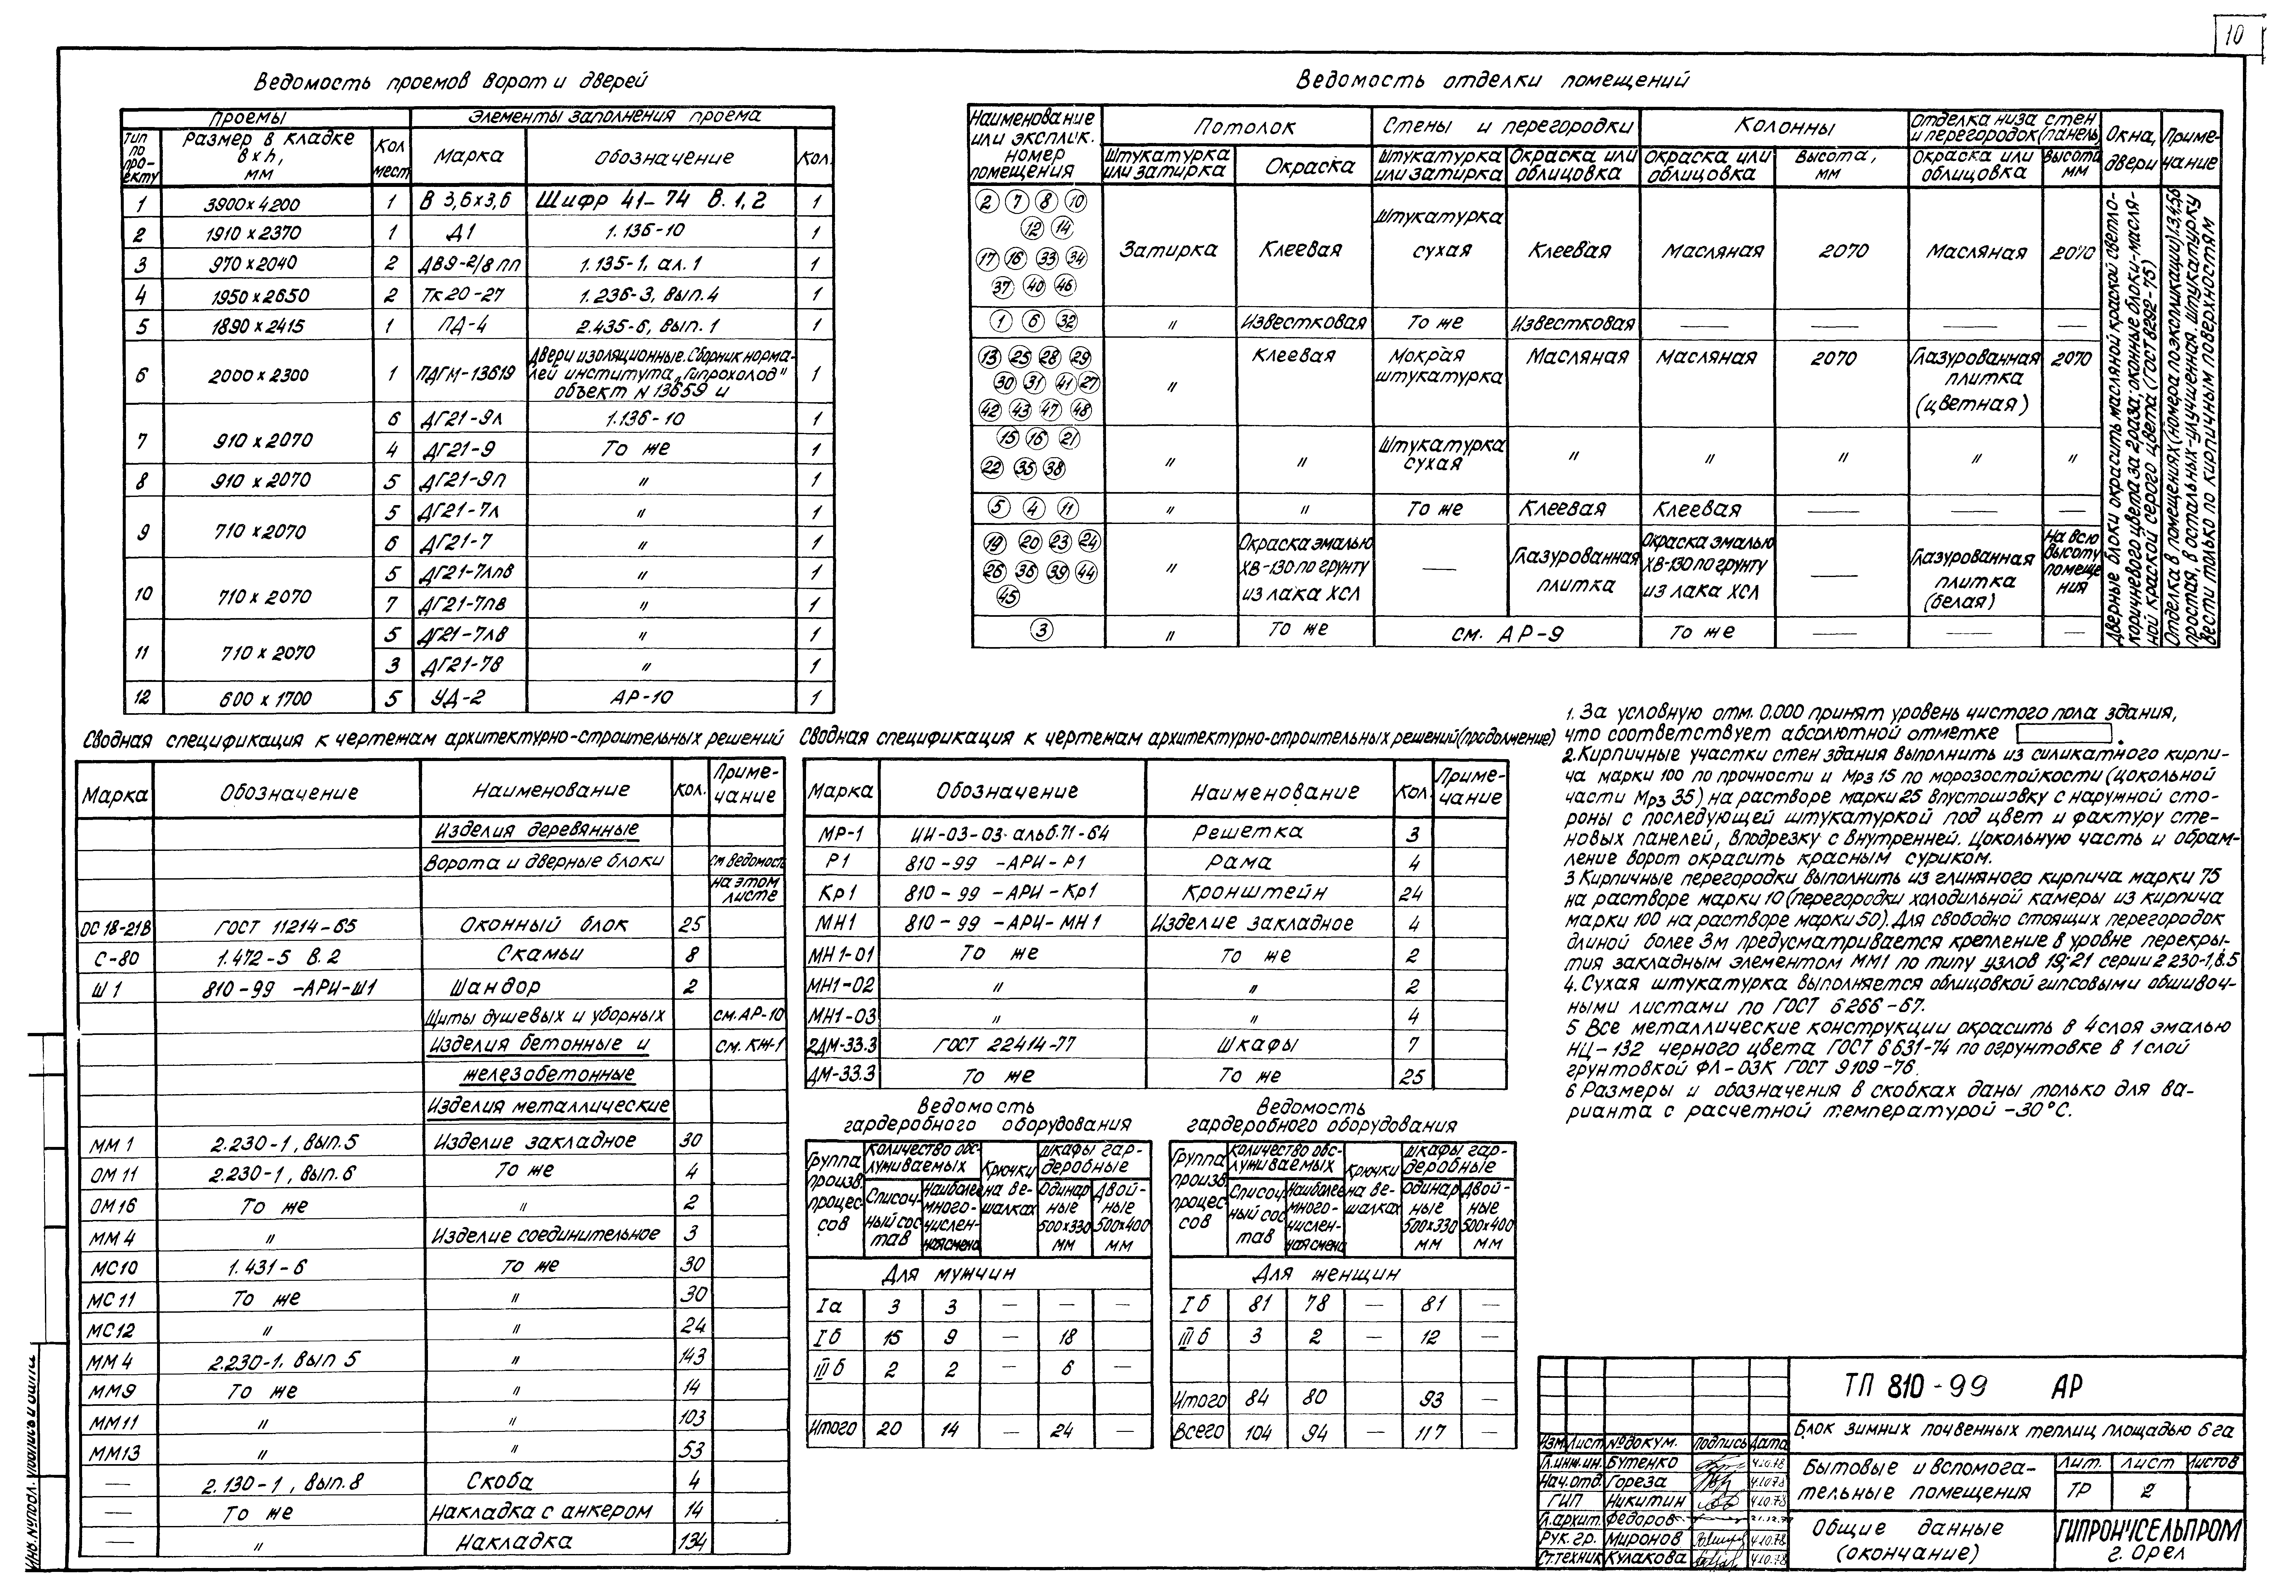 10
Ведомость проемов ворот и дверей
Проемы | Элементы заполнения проема
Тип по проекту | Размер в кладке в х h, мм | Кол мест | Марка | Обозначение | Кол.
1 | 3900 х 4200 | 1 | В 3,6х3,6 | Шифр 41-74 В. 1, 2 | 1
2 | 1910 х 2370 | 1 | Д1 | 1.136-10 | 1
3 | 970 х 2040 | 2 | ДВ9-2/8 пп | 1.135-1, ал. 1 | 1
4 | 1950 х 2650 | 2 | Тк 20-27 | 1.236-3, вып. 4 | 1
5 | 1890 х 2415 | 1 | ПД-4 | 2.435-6, вып. 1 | 1
6 | 2000 х 2300 | 1 | ПДГМ-13619 | Двери изоляционные. Сборник нормалей института „Гипрохолод" объект N 13659 и | 1
7 | 910 х 2070 | 6 | ДГ21-9л | 1.136-10 | 1
4 | ДГ21-9 | То же | 1
8 | 910 х 2070 | 5 | ДГ21-9п | " | 1
9 | 710 х 2070 | 5 | ДГ21-7л | " | 1
6 | ДГ21-7 | " | 1
10 | 710 х 2070 | 5 | ДГ21-7лпв | " | 1
7 | ДГ21-7пв | " | 1
11 | 710 х 2070 | 5 | ДГ21-7лв | " | 1
3 | ДГ21-7в | " | 1
12 | 600 х 1700 | 5 | УД-2 | АР-10 | 1
Ведомость отделки помещений
Наименование или эксплик. номер помещения | Потолок | Стены и перегородки | Колонны | Отделка низа стен и перегородок (панель) | Окна, двери | Примечание
Штукатурка или затирка | Окраска | Штукатурка или затирка | Окраска или облицовка | Окраска или облицовка | Высота, мм | Окраска или облицовка | Высота мм
2 7 8 10 12 14 17 16 33 34 37 40 46 | Затирка | Клеевая | Штукатурка сухая | Клеевая | Масляная | 2070 | Масляная | 2070
1 6 32 | " | Известковая | То же | Известковая | — | — | — | —
13 25 28 29 30 31 41 27 42 43 47 48 | " | Клеевая | Мокрая штукатурка | Масляная | Масляная | 2070 | Глазурованная плитка (цветная) | 2070
15 16 21 22 35 38 | " | " | Штукатурка сухая | " | " | " | " | "
5 4 11 | " | " | То же | Клеевая | Клеевая | — | — | —
19 20 23 24 26 36 39 44 45 | " | Окраска эмалью ХВ-130 по грунту из лака ХСЛ | — | Глазурованная плитка | Окраска эмалью ХВ-130 по грунту из лака ХСЛ | — | Глазурованная плитка (белая) | На всю высоту помещения
3 | " | То же | см. АР-9 | То же | — | — | —
Дверные блоки окрасить масляной краской светло-
коричневого цвета за 2 раза; оконные блоки-масля-
ной краской серого цвета (ГОСТ 8292-75)
Отделка в помещениях (номера по экспликации) 1,3,4,5,6
простая, в остальных-улучшенная. Штукатурку
вести только по кирпичным поверхностям
Сводная спецификация к чертежам архитектурно-строительных решений
Марка | Обозначение | Наименование | Кол. | Примечание
Изделия деревянные
Ворота и дверные блоки | см ведомость на этом листе
ОС 18-21В | ГОСТ 11214-65 | Оконный блок | 25
С-80 | 1.472-5 В. 2 | Скамьи | 8
Ш1 | 810-99 -АРИ-Ш1 | Шандор | 2
Щиты душевых и уборных | см. АР-10
Изделия бетонные и | см. КЖ-1
железобетонные
Изделия металлические
ММ 1 | 2.230-1, вып. 5 | Изделие закладное | 30
ОМ 11 | 2.230-1, вып. 6 | То же | 4
ОМ 16 | То же | " | 2
ММ 4 | " | Изделие соединительное | 3
МС10 | 1.431-6 | То же | 30
МС 11 | То же | " | 30
МС12 | " | " | 24
ММ 4 | 2.230-1, вып 5 | " | 143
ММ9 | То же | " | 14
ММ11 | " | " | 103
ММ13 | " | " | 53
— | 2.130-1, вып. 8 | Скоба | 4
— | То же | Накладка с анкером | 14
— | " | Накладка | 134
Сводная спецификация к чертежам архитектурно-строительных решений (продолжение)
Марка | Обозначение | Наименование | Кол. | Примечание
МР-1 | ИИ-03-03. альб. 71-64 | Решетка | 3
Р1 | 810-99 -АРИ-Р1 | Рама | 4
Кр1 | 810-99 -АРИ-Кр1 | Кронштейн | 24
МН1 | 810-99 -АРИ-МН1 | Изделие закладное | 4
МН1-01 | То же | То же | 2
МН1-02 | " | " | 2
МН1-03 | " | " | 4
2ДМ-33.3 | ГОСТ 22414-77 | Шкафы | 7
ДМ-33.3 | То же | То же | 25
Ведомость
гардеробного оборудования
Группа произв. процессов | Количество обслуживаемых | Крючки на вешалках | Шкафы гардеробные
Списочный состав | Наиболее многочисленная смена | Одинарные 500х330 мм | Двойные 500х400 мм
Для мужчин
Iа | 3 | 3 | — | — | —
Iб | 15 | 9 | — | 18 | —
IIIб | 2 | 2 | — | 6 | —
Итого | 20 | 14 | — | 24 | —
Ведомость
гардеробного оборудования
Группа произв. процессов | Количество обслуживаемых | Крючки на вешалках | Шкафы гардеробные
Списочный состав | Наиболее многочисленная смена | Одинарные 500х330 мм | Двойные 500х400 мм
Для женщин
Iб | 81 | 78 | — | 81 | —
IIIб | 3 | 2 | — | 12 | —
Итого | 84 | 80 | 93 | —
Всего | 104 | 94 | — | 117 | —
1. За условную отм. 0.000 принят уровень чистого пола здания,
что соответствует абсолютной отметке .
2. Кирпичные участки стен здания выполнить из силикатного кирпи-
ча марки 100 по прочности и Мрз 15 по морозостойкости (цокольной
части Мрз 35) на растворе марки 25 впустошовку с наружной сто-
роны с последующей штукатуркой под цвет и фактуру сте-
новых панелей, вподрезку с внутренней. Цокольную часть и обрам-
ление ворот окрасить красным суриком.
3 Кирпичные перегородки выполнить из глиняного кирпича марки 75
на растворе марки 10 (перегородки холодильной камеры из кирпича
марки 100 на растворе марки 50). Для свободно стоящих перегородок
длиной более 3м предусматривается крепление в уровне перекры-
тия закладным элементом ММ1 по типу узлов 19; 21 серии 2 230-1, в.5
4. Сухая штукатурка выполняется облицовкой гипсовыми обшивоч-
ными листами по ГОСТ 6266-67.
5 Все металлические конструкции окрасить в 4 слоя эмалью
НЦ-132 черного цвета ГОСТ 6631-74 по огрунтовке в 1 слой
грунтовкой ФЛ-03К ГОСТ 9109-76.
6 Размеры и обозначения в скобках даны только для ва-
рианта с расчетной температурой -30°С.
ТП 810-99 АР
Блок зимних почвенных теплиц площадью 6 га
Изм Лист №докум. Подпись Дата
Гл.инж.ин. Бутенко 4.10.78
Нач.отд. Гореза 4.10.78
ГИП Никитин 4.10.78
Гл.архит. Федоров
Рук. гр. Миронов 4.10.78
Ст.техник Кулакова 4.10.78
Бытовые и вспомога-
тельные помещения
Лит. Лист Листов
ТР 2
Общие данные
(окончание)
ГИПРОНИСЕЛЬПРОМ
г. Орел
Инв. №подл. Подпись и дата